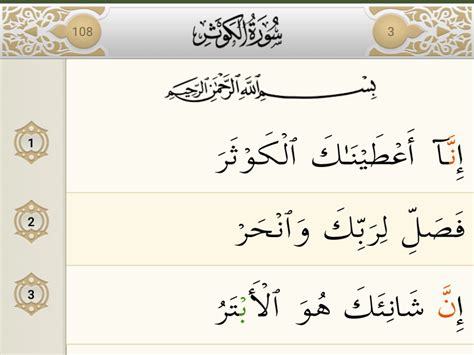 108 سُورَةُ الكَوْثَر 3
بِسْمِ اللَّهِ الرَّحْمَٰنِ الرَّحِيمِ
1 إِنَّآ أَعْطَيْنَٰكَ ٱلْكَوْثَرَ
2 فَصَلِّ لِرَبِّكَ وَٱنْحَرْ
3 إِنَّ شَانِئَكَ هُوَ ٱلْأَبْتَرُ